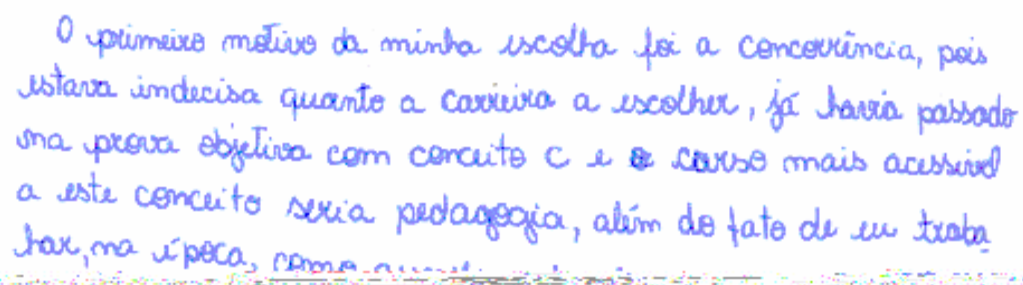 O primeiro motivo da minha escolha foi a concorrência, pois
estava indecisa quanto a carreira a escolher, já havia passado
na prova objetiva com conceito C e o curso mais acessivel
a este conceito seria pedagogia, além do fato de eu traba
har, na época, como